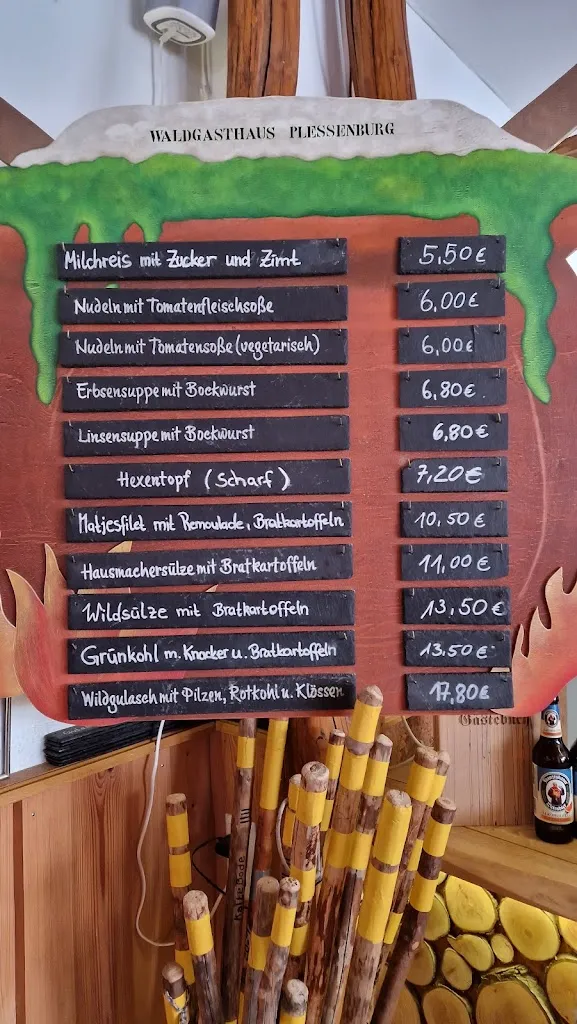 WALDGASTHAUS PLESSENBURG
Milchreis mit Zucker und Zimt 5,50 €
Nudeln mit Tomatenfleischsoße 6,00 €
Nudeln mit Tomatensoße (vegetarisch) 6,00 €
Erbsensuppe mit Bockwurst 6,80 €
Linsensuppe mit Bockwurst 6,80 €
Hexentopf (Scharf) 7,20 €
Matjesfilet mit Remoulade, Bratkartoffeln 10,50 €
Hausmachersülze mit Bratkartoffeln 11,00 €
Wildsülze mit Bratkartoffeln 13,50 €
Grünkohl m. Knacker u. Bratkartoffeln 13.50 €
Wildgulasch mit Pilzen, Rotkohl u. Klössen 17,80 €